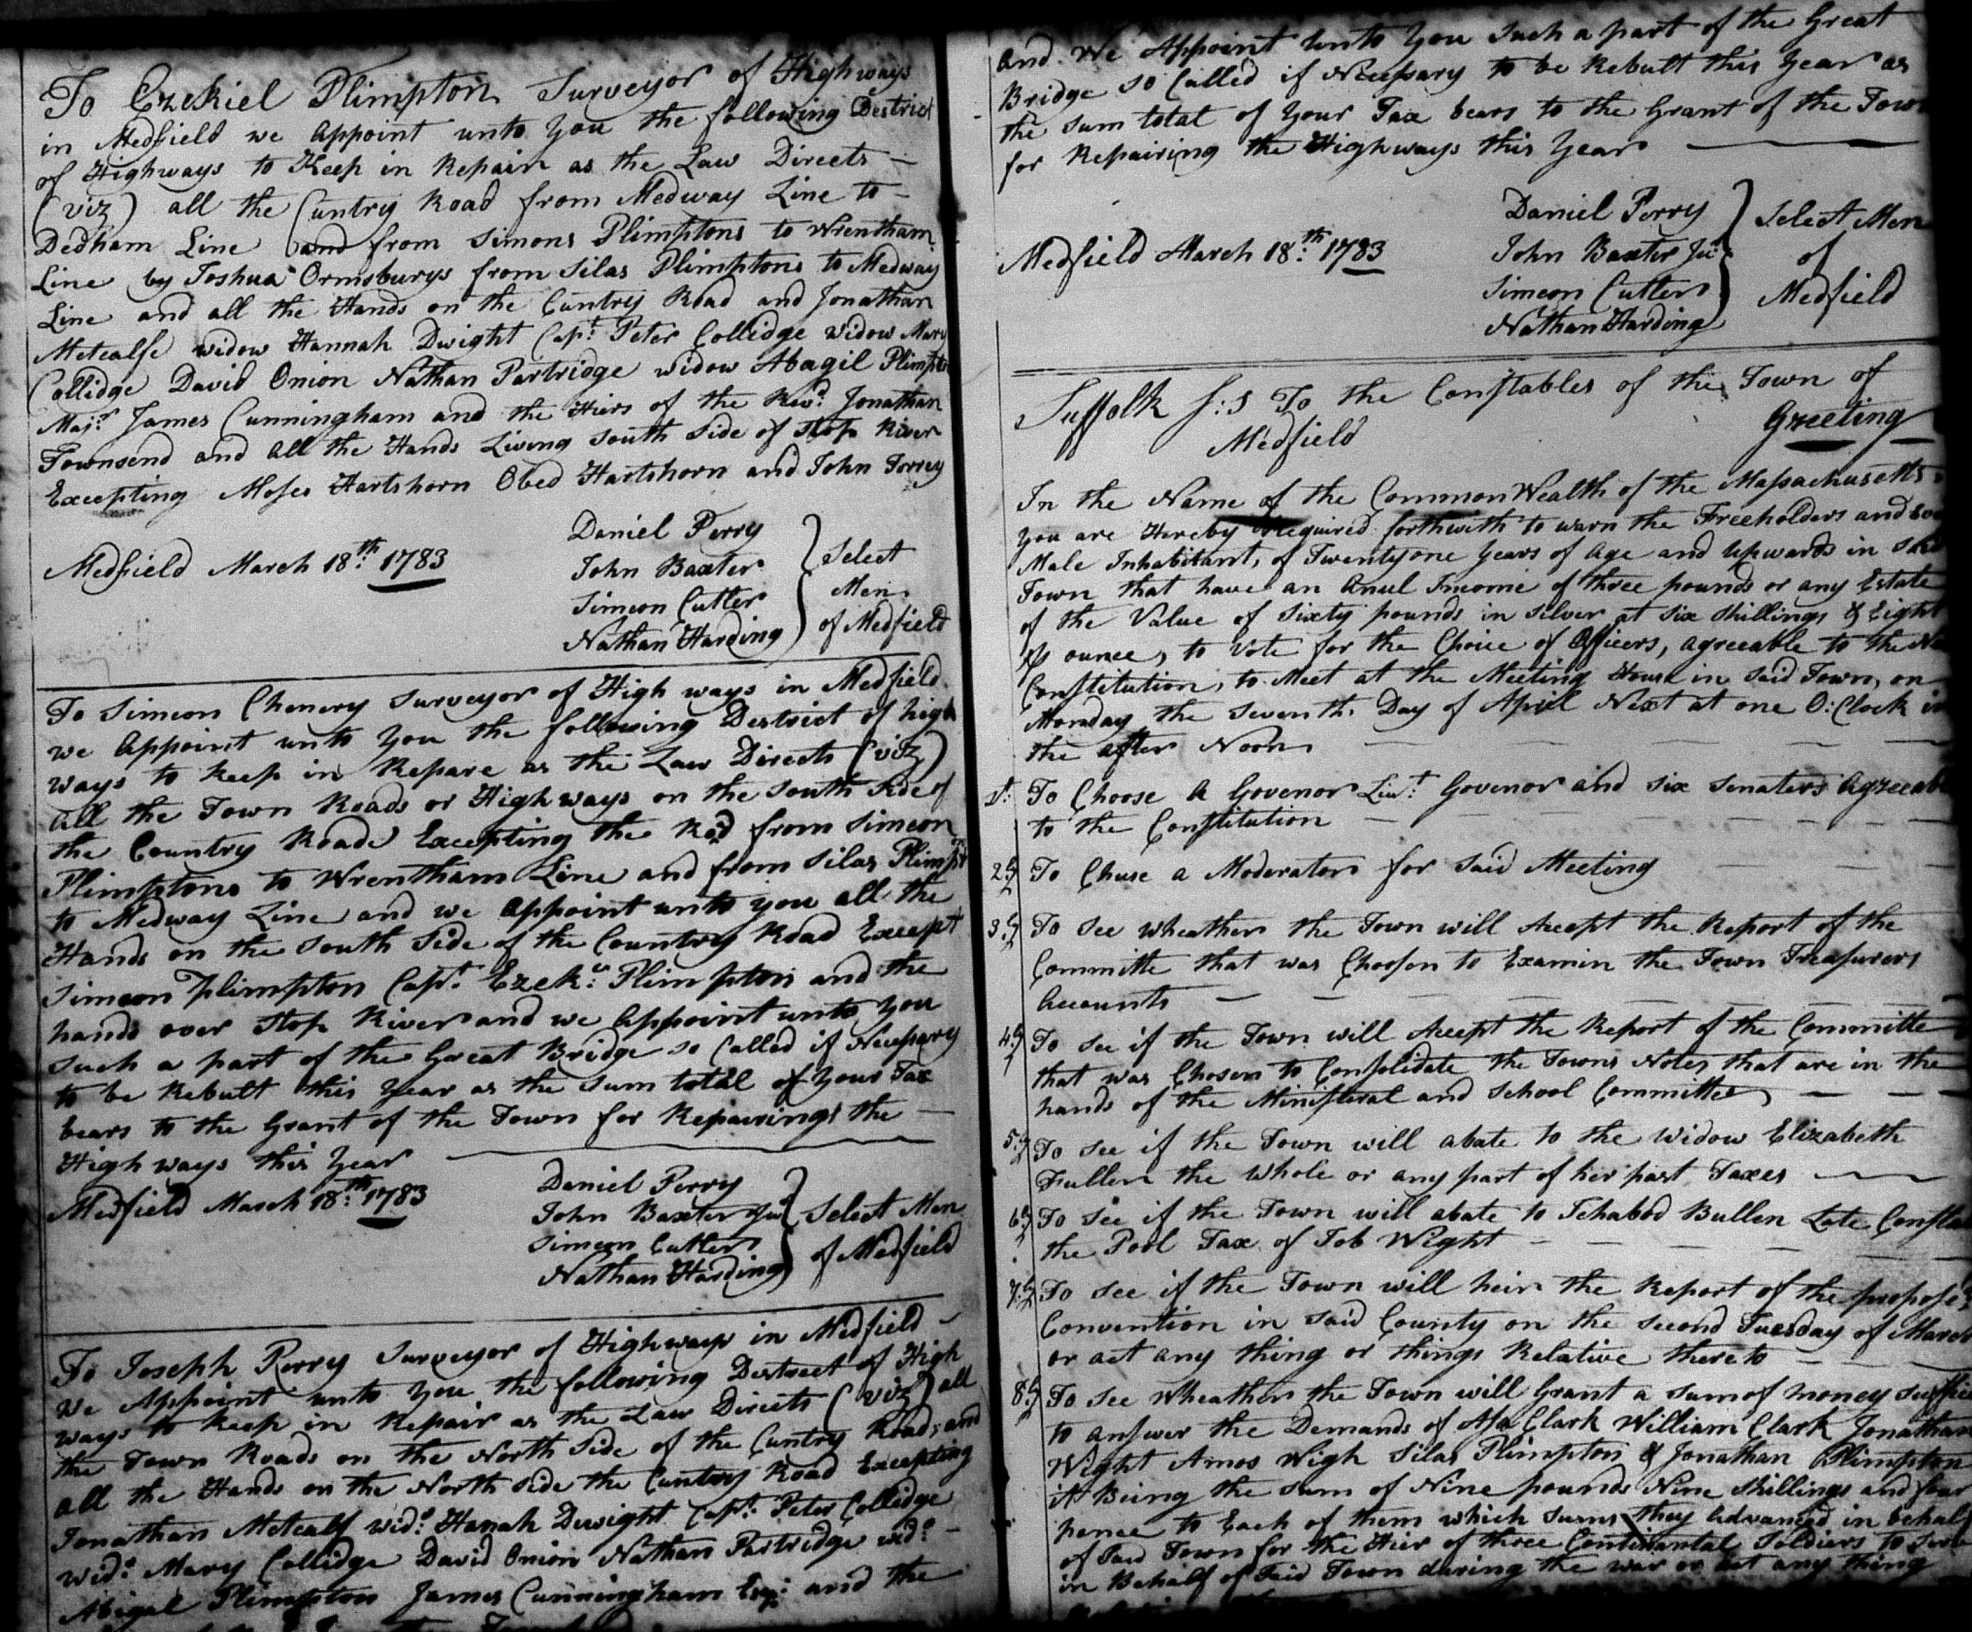 To Ezekiel Plimpton Surveyor of Highways
in Medfield we Appoint unto You the following Destrict
of Highways to Keep in Repair as the Law Directs —
(viz) all the Cuntry Road from Medway Line to —
Dedham Line and from Simons Plimptons to Wrentham
Line by Joshua Ormsburys from Silas Plimptons to Medway
Line and all the Hands on the Cuntry Road and Jonathan
Metcalfe widow Hannah Dwight Capt. Peter Collidge widow Mary
Collidge David Onion Nathan Partridge widow Abagil Plimpton
Majr. James Cunningham and the Hirs of the Revd. Jonathan
Townsend and all the Hands Living South Side of Stop River
Excepting Moses Hartshorn Obed Hartshorn and John Torrey
Daniel Perry
Medfield March 18th. 1783 John Baxter Select
Simeon Cutler Men
Nathan Harding of Medfield
To Simeon Chenery Surveyor of High ways in Medfield
we Appoint unto You the following Destrict of high
ways to keep in Repare as the Law Directs (viz)
all the Town Roads or Highways on the South Side of
the Country Road Excepting the Road from Simeon
Plimptons to Wrentham Line and from Silas Plimptons
to Medway Line and we Appoint unto you all the
Hands on the South Side of the Country Road Except
Simeon Plimpton Capt. Ezekl. Plimpton and the
hands over Stop River and we Appoint unto You
Such a part of the Great Bridge so Called if Necessary
to be Rebult this Year as the Sum total of Your Tax
bears to the Grant of the Town for Repairing the —
High ways this Year
Daniel Perry
Medfield March 18th. 1783 John Baxter Jur. Select Men
Simeon Cutler of Medfield
Nathan Harding
To Joseph Perry Surveyor of Highways in Medfield —
we Appoint unto You the following Destreet of High
ways to keep in Repair as the Law Directs (viz) all
the Town Roads on the North Side of the Cuntry Road, and
all the Hands on the North Side the Cuntry Road Excepting
Jonathan Metcalf widw. Hanah Dwight Capt. Peter Collidge
widw. Mary Collidge David Onion Nathan Partridge widw.
Abigal Plimpton James Cunningham Esqr. and the
and We Appoint unto You Such a part of the Great
Bridge so Called if Necessary to be Rebult this Year as
the Sum total of Your Tax bears to the Grant of the Town
for Repairing the Highways this Year
Daniel Perry Select Men
Medfield March 18th. 1783 John Baxter Jur. of
Simeon Cutler Medfield
Nathan Harding
Suffolk S:S To the Constables of the Town of
Medfield Greeting
In the Name of the Common Wealth of the Massachusetts
you are Hereby Required forthwith to warn the Freeholders and
Male Inhabitants of Twentyone Years of age and upwards in Said
Town that have an Anul Income of three pounds or any Estate
of the Value of Sixty pounds in Silver at Six Shillings & Eight
pr ounce, to Vote for the Choice of Officers, agreeable to the
Constitution, to Meet at the Meeting House in Said Town, on
Monday the Seventh Day of April Next at one O:Clock in
the after Noon
1st. To Choose A Govenor Liut. Govenor and Six Senaters Agreeable
to the Constitution
2ly To Chuse a Moderator for Said Meeting
3ly To See Wheather the Town will Accept the Report of the
Committe that was Choosen to Examin the Town Treasurers
Accounts
4ly To See if the Town will Accept the Report of the Committe
that was Chosen to Consolidate the Towns Notes that are in the
hands of the Ministeral and School Committee
5ly To See if the Town will abate to the Widow Elizabeth
Fuller the Whole or any part of her past Taxes
6ly To See if the Town will abate to Ichabod Bullen Late Constable
the Pool Tax of Job Wight
7ly To See if the Town will heir the Report of the proposed
Convention in Said County on the Second Tuesday of March
or act any thing or things Relative thereto
8ly To See Wheather the Town will Grant a Sum of money
to answer the Demands of Asa Clark William Clark Jonathan
Wight Amos Wigh Silas Plimpton & Jonathan Plimpton
it Being the Sum of Nine pounds Nine Shillings and four
pence to Each of them which Sums they Advanced in behalf
of Said Town for the Hier of three Continantal Soldiers to Serve
in Behalf of Said Town during the war or act any thing